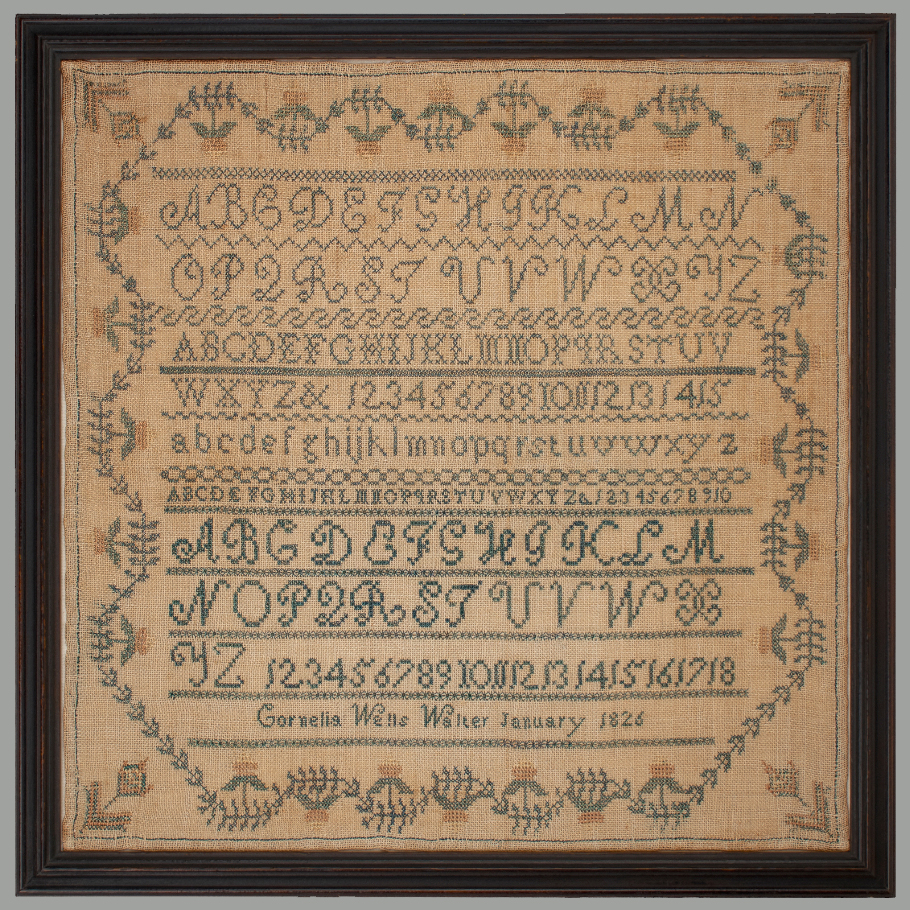 A B C D E F G H I K L M N
O P Q R S T U V W X Y Z
A B C D E F G H I J K L M N O P Q R S T U V
W X Y Z & 1 2 3 4 5 6 7 8 9 10 11 12 13 14 15
a b c d e f g h i j k l m n o p q r s t u v w x y z
A B C D E F G H I J K L M N O P Q R S T U V W X Y Z & 1 2 3 4 5 6 7 8 9 10
A B C D E F G H I K L M
N O P Q R S T U V W X
Y Z 1 2 3 4 5 6 7 8 9 10 11 12 13 14 15 16 17 18
Cornelia Wells Walter January 1826